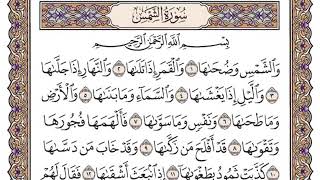 سُورَةُ الشَّمْسِ
بِسْمِ اللَّهِ الرَّحْمَٰنِ الرَّحِيمِ
وَالشَّمْسِ وَضُحَىٰهَا ١ وَالْقَمَرِ إِذَا تَلَىٰهَا ٢ وَالنَّهَارِ إِذَا جَلَّىٰهَا
٣ وَالَّيْلِ إِذَا يَغْشَىٰهَا ٤ وَالسَّمَاءِ وَمَا بَنَىٰهَا ٥ وَالْأَرْضِ
وَمَا طَحَىٰهَا ٦ وَنَفْسٍ وَمَا سَوَّىٰهَا ٧ فَأَلْهَمَهَا فُجُورَهَا
وَتَقْوَىٰهَا ٨ قَدْ أَفْلَحَ مَن زَكَّىٰهَا ٩ وَقَدْ خَابَ مَن دَسَّىٰهَا
١٠ كَذَّبَتْ ثَمُودُ بِطَغْوَىٰهَا ١١ إِذِ انبَعَثَ أَشْقَىٰهَا ١٢ فَقَالَ لَهُمْ